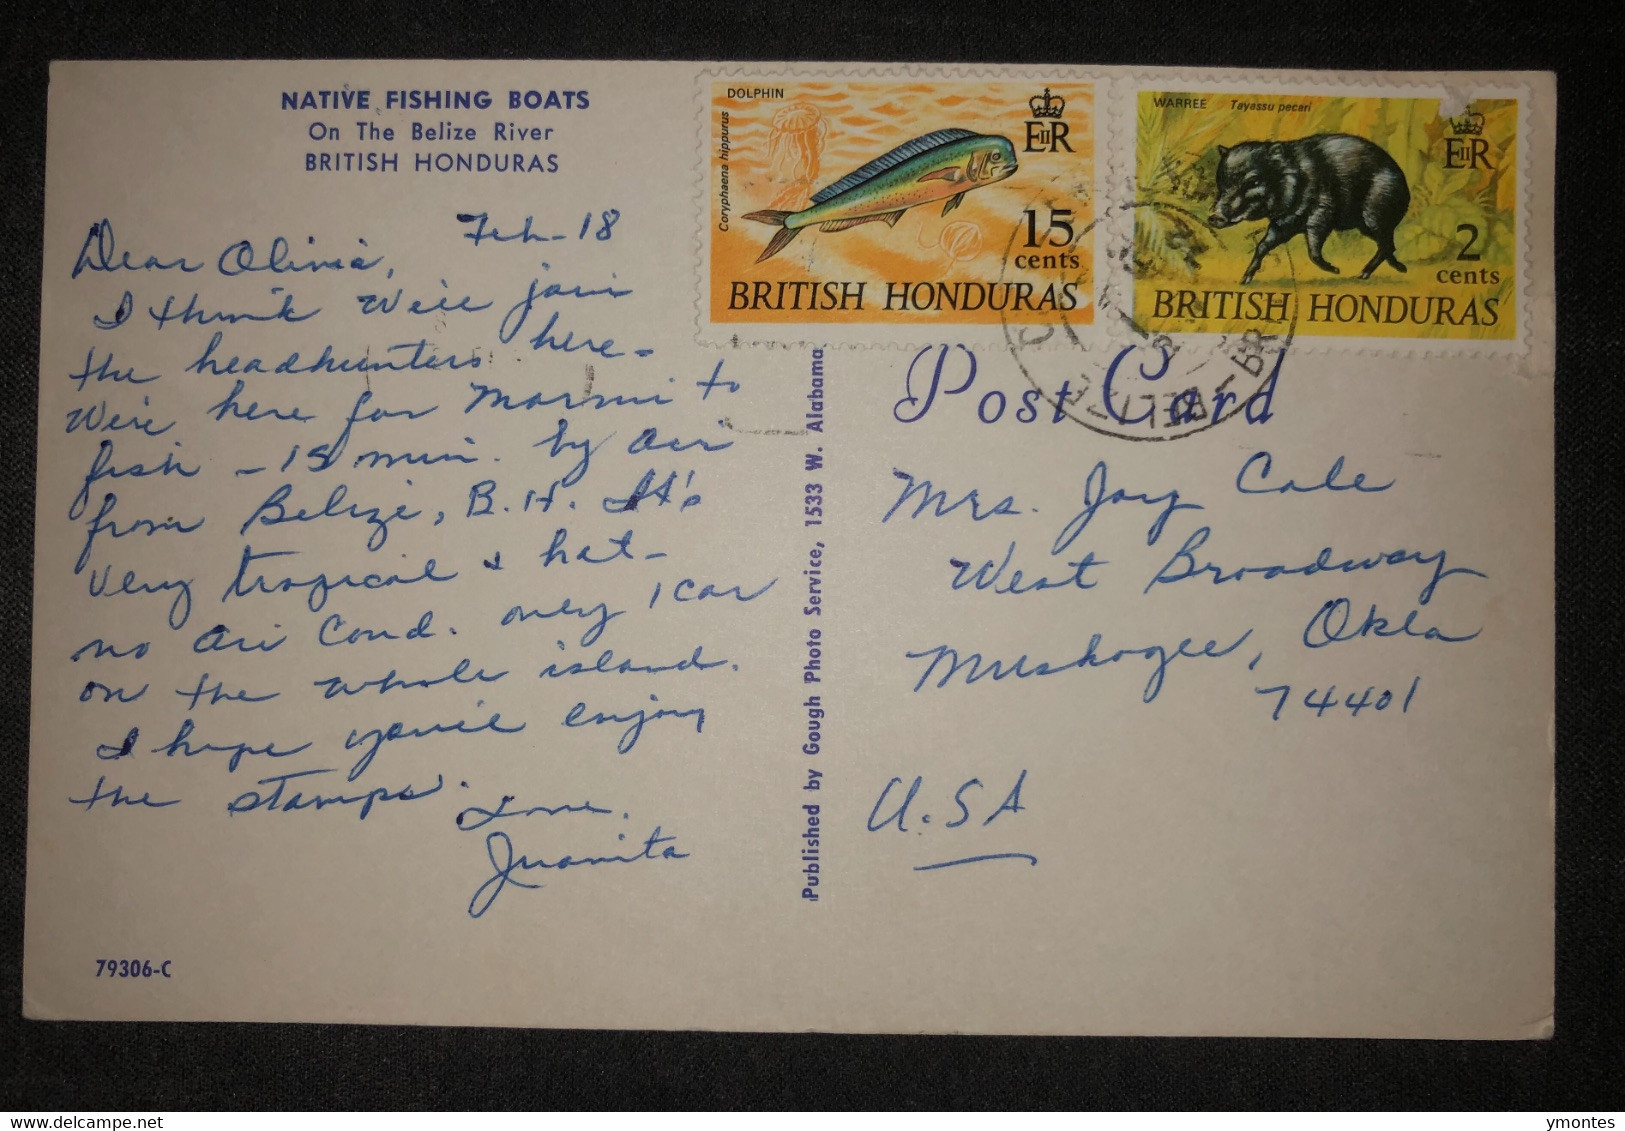 NATIVE FISHING BOATS
On The Belize River
BRITISH HONDURAS
Feb-18
Dear Olivia,
I think we'll join
the headhunters here-
We're here for Marvin to
fish - 15 min. by air
from Belize, B.H. It's
very tropical & hot-
no air cond. only 1 car
on the whole island.
I hope you'll enjoy
the stamps.
Love,
Juanita
79306-C
Published by Gough Photo Service, 1533 W. Alabama
DOLPHIN
Coryphaena hippurus
EIIR
15
cents
BRITISH HONDURAS
WARREE Tayassu pecari
EIIR
2
cents
BRITISH HONDURAS
BELIZE
Post Card
Mrs. Jay Cole
West Broadway
Muskogee, Okla
74401
U.S.A
ymontes